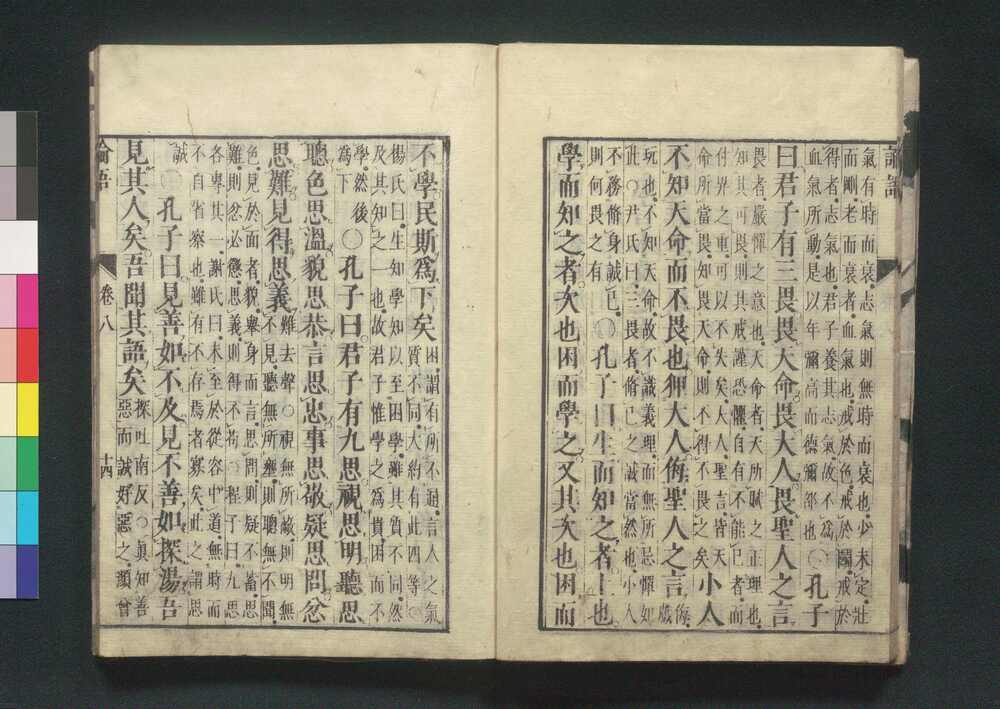 論語
氣有時而衰志氣則無時而衰也少未定壯
而剛老而衰者血氣也戒於色戒於鬭戒於
得者志氣也君子養其志氣故不爲
血氣所動是以年彌高而德彌邵也
○孔子
曰君子有三畏畏天命畏大人畏聖人之言
畏者嚴憚之意也天命者天所賦之正理也
知其可畏則其戒謹恐懼自有不能已者而
付畀之重可以不失矣大人聖言皆天
命所當畏知畏天命則不得不畏之矣
小人
不知天命而不畏也狎大人侮聖人之言
侮
戲
玩也不知天命故不識義理而無所忌憚如
此○尹氏曰三畏者脩己之誠當然也小人
不務脩身誠己
則何畏之有
○孔子曰生而知之者上也
學而知之者次也困而學之又其次也困而
不學民斯爲下矣
困謂有所不通言人之氣
質不同大約有此四等○
楊氏曰生知學知以至困學雖其質不同然
及其知之一也故君子惟學之爲貴困而不
學然後
爲下
○孔子曰君子有九思視思明聽思
聰色思溫貌思恭言思忠事思敬疑思問忿
思難見得思義
難去聲○視無所蔽則明無
不見聽無所壅則聰無不聞
色見於面者貌舉身而言思問則疑不蓄思
難則忿必懲思義則得不苟○程子曰九思
各專其一謝氏曰未至於從容中道無時而
不自省察也雖有不存焉者寡矣此之謂思
誠
○孔子曰見善如不及見不善如探湯吾
見其人矣吾聞其語矣
探吐南反○眞知善
惡而誠好惡之顏曾
論語 卷八 十四